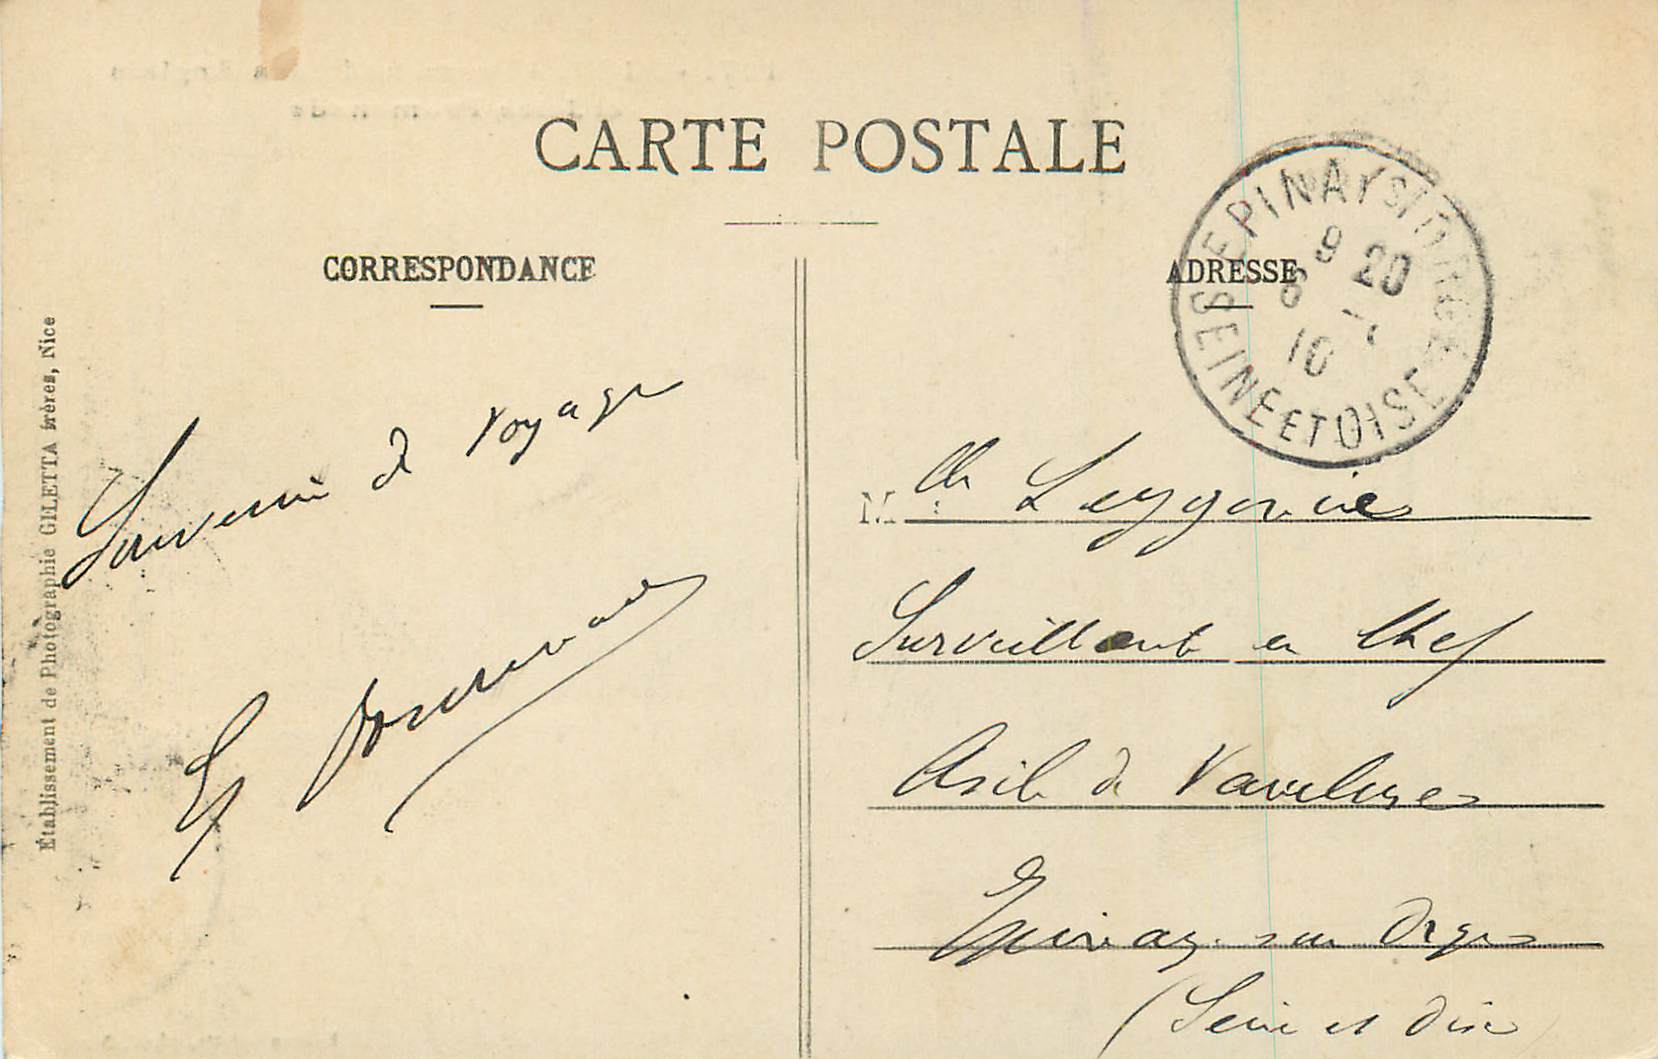 CARTE POSTALE
CORRESPONDANCE
ADRESSE
EPINAY S/ ORGE
9 20
6 - 7
10
SEINE ET OISE
Établissement de Photographie GILETTA frères, Nice
Souvenir de voyage
M lle
Surveillante en Chef
Asile de Vaucluse
Epinay sur Orge
(Seine et Oise